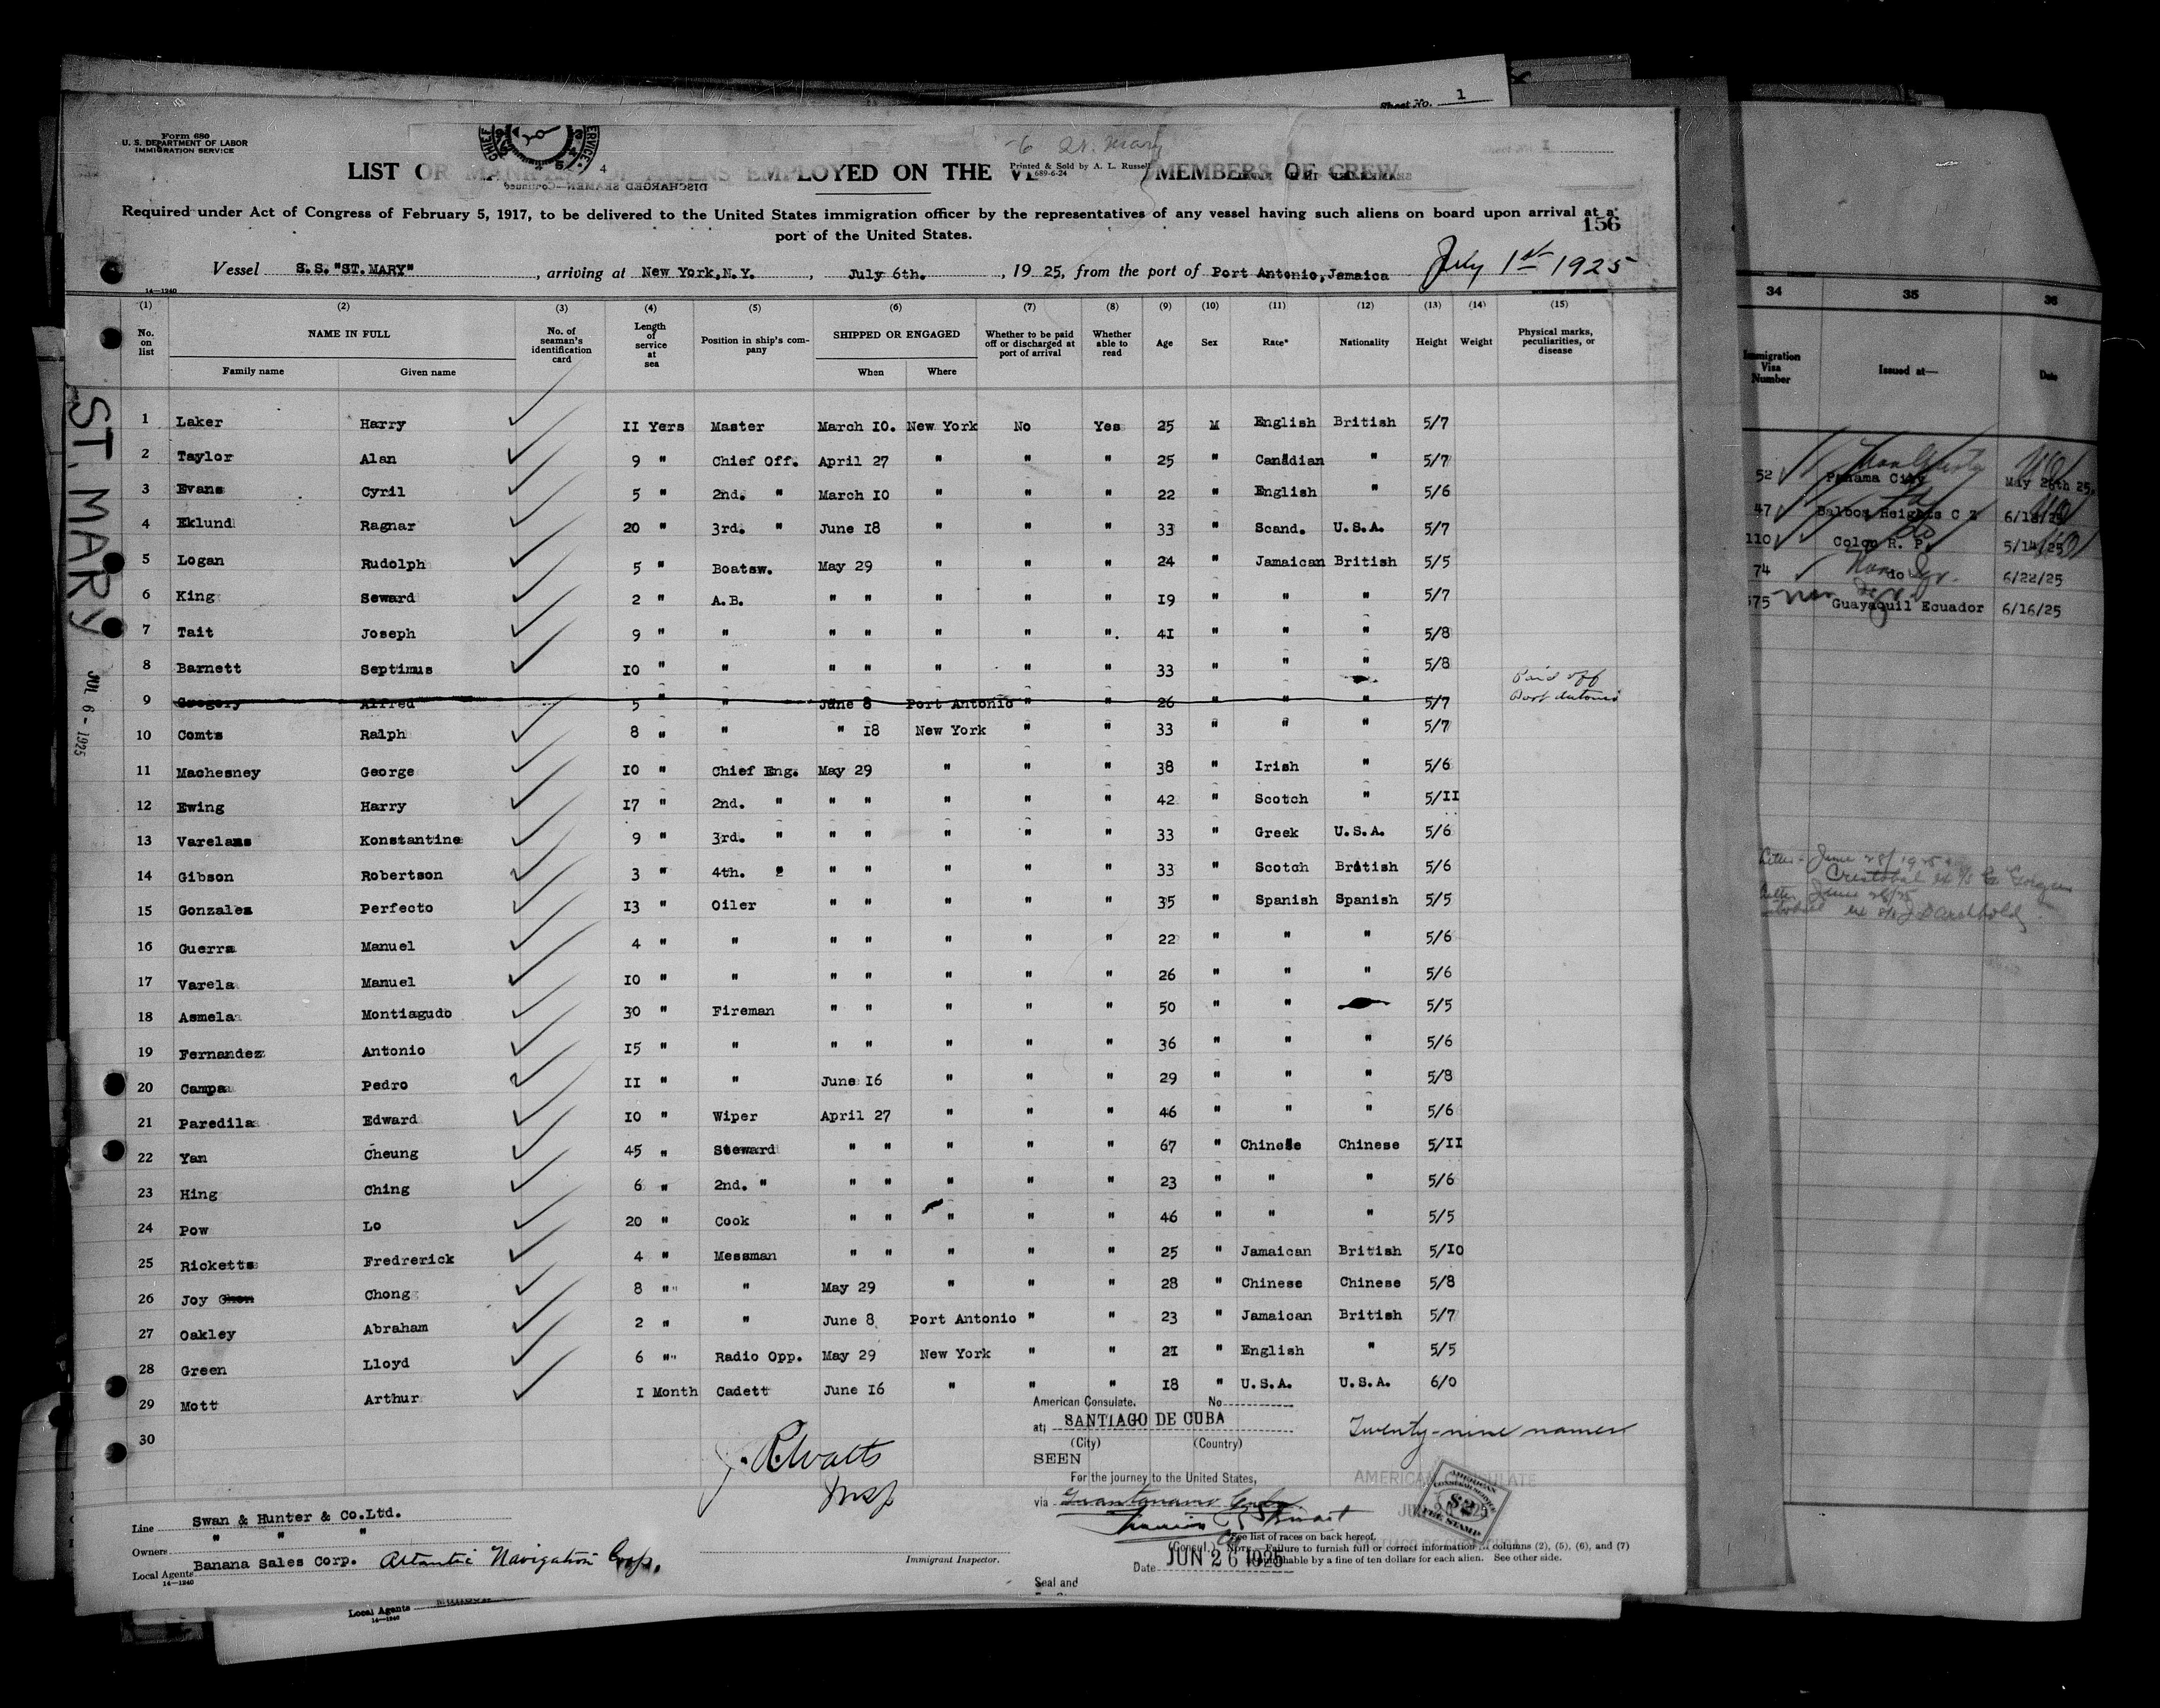 Sheet No. 1
Form 680
U. S. DEPARTMENT OF LABOR
IMMIGRATION SERVICE
St. Mary
Printed & Sold by A. L. Russell
689-6-24
LIST OR MANIFEST OF ALIENS EMPLOYED ON THE VE MEMBERS OF CREW
DISCHARGED SEAMEN—Continued
Required under Act of Congress of February 5, 1917, to be delivered to the United States immigration officer by the representatives of any vessel having such aliens on board upon arrival at a
port of the United States.
156
Vessel S.S. "ST. MARY", arriving at New York, N.Y., July 6th., 1925, from the port of Port Antonio, Jamaica July 1st 1925
14—1240
(1) (2) (3) (4) (5) (6) (7) (8) (9) (10) (11) (12) (13) (14) (15)
No. on list NAME IN FULL No. of seaman's identification card Length of service at sea Position in ship's company SHIPPED OR ENGAGED Whether to be paid off or discharged at port of arrival Whether able to read Age Sex Race* Nationality Height Weight Physical marks, peculiarities, or disease
Family name Given name When Where
1 Laker Harry II Yers Master March I0. New York No Yes 25 M English British 5/7
2 Taylor Alan 9 " Chief Off. April 27 " " " 25 " Canadian " 5/7
3 Evans Cyril 5 " 2nd. " March I0 " " " 22 " English " 5/6
4 Eklund Ragnar 20 " 3rd. " June I8 " " " 33 " Scand. U.S.A. 5/7
5 Logan Rudolph 5 " Boatsw. May 29 " " " 24 " Jamaican British 5/5
6 King Seward 2 " A.B. " " " " " I9 " " " 5/7
7 Tait Joseph 9 " " " " " " ". 4I " " " 5/8
8 Barnett Septimus I0 " " " " " " " 33 " " " 5/8
9 Gregory Alfred 5 " " June 8 Port Antonio " " 26 " " " 5/7 Paid off Port Antonio
10 Comts Ralph 8 " " " I8 New York " " 33 " " " 5/7
11 Machesney George I0 " Chief Eng. May 29 " " " 38 " Irish " 5/6
12 Ewing Harry I7 " 2nd. " " " " " " 42 " Scotch " 5/II
13 Varelams Konstantine 9 " 3rd. " " " " " " 33 " Greek U.S.A. 5/6
14 Gibson Robertson 3 " 4th. " " " " " " 33 " Scotch British 5/6
15 Gonzales Perfecto I3 " Oiler " " " " " 35 " Spanish Spanish 5/5
16 Guerra Manuel 4 " " " " " " " 22 " " " 5/6
17 Varela Manuel I0 " " " " " " " 26 " " " 5/6
18 Asmela Montiagudo 30 " Fireman " " " " " 50 " " 5/5
19 Fernandez Antonio I5 " " " " " " " 36 " " " 5/6
20 Campa Pedro II " " June I6 " " " 29 " " " 5/8
21 Paredila Edward I0 " Wiper April 27 " " " 46 " " " 5/6
22 Yan Cheung 45 " Steward " " " " " 67 " Chinese Chinese 5/II
23 Hing Ching 6 " 2nd. " " " " " " 23 " " " 5/6
24 Pow Lo 20 " Cook " " " " " 46 " " " 5/5
25 Ricketts Fredrerick 4 " Messman " " " " " 25 " Jamaican British 5/I0
26 Joy Chon Chong 8 "" " May 29 " " " 28 " Chinese Chinese 5/8
27 Oakley Abraham 2 " " June 8 Port Antonio " " 23 " Jamaican British 5/7
28 Green Lloyd 6 "" Radio Opp. May 29 New York " " 2I " English " 5/5
29 Mott Arthur I Month Cadett June I6 " " " I8 " U.S.A. U.S.A. 6/0
30
ST. MARY
JUL 6 - 1925
J. R. Watts
Insp
American Consulate. No
at; SANTIAGO DE CUBA
(City) (Country)
SEEN
For the journey to the United States,
via Guantanamo Cuba
(Consul.)
Date JUN 26 1925
Seal and
Twenty-nine names
AMERICAN CONSULATE
JUN 26 1925
AMERICAN CONSULAR SERVICE
$2
FEE STAMP
Line Swan & Hunter & Co.Ltd.
Owners " " "
Local Agents Banana Sales Corp. Atlantic Navigation Corp.
14—1240
Immigrant Inspector.
See list of races on back hereof.
NOTE.—Failure to furnish full or correct information in columns (2), (5), (6), and (7)
punishable by a fine of ten dollars for each alien. See other side.
Local Agents
14—1240
34 35 36
Immigration Visa Number Issued at— Date
52 Panama City May 26th 25.
47 Balboa Heights C Z 6/18/25
110 Colon R. P. 5/14/25
74 do 6/22/25
575 Guayaquil Ecuador 6/16/25
June 28/1925
Cristobal
June 26/25